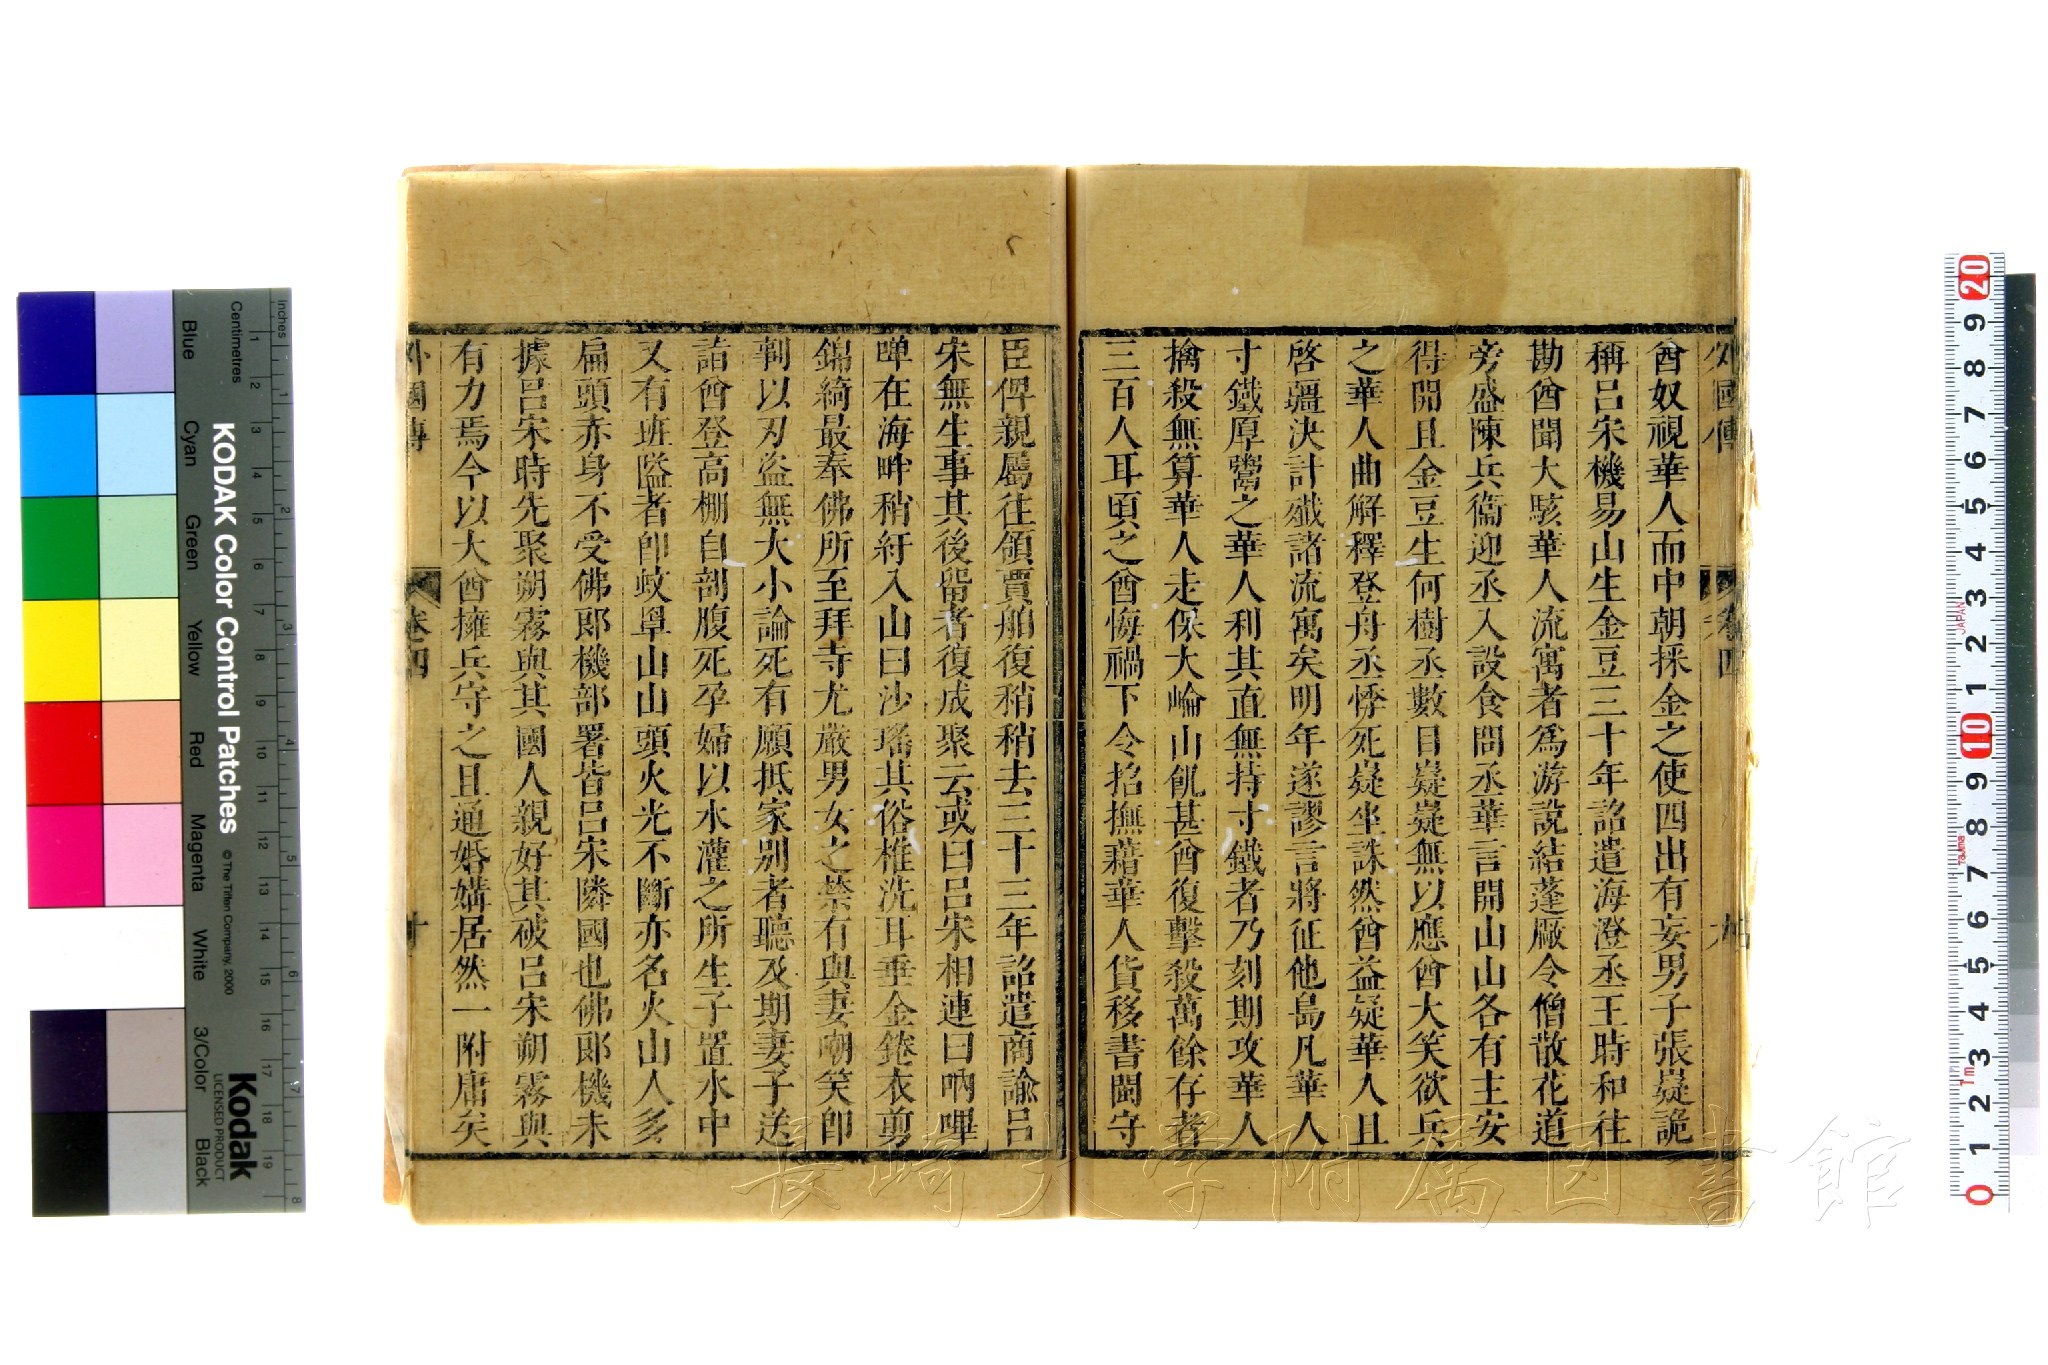 外國傳 卷四 九
酋奴視華人而中朝採金之使四出有妄男子張嶷詭
稱呂宋機易山生金豆三十年詔遣海澄丞王時和往
勘酋聞大駭華人流寓者為游說結蓬厰令僧散花道
旁盛陳兵衞迎丞入設食問丞華言開山山各有主安
得開且金豆生何樹丞數目嶷嶷無以應酋大笑欲兵
之華人曲解釋登舟丞悸死嶷坐誅然酋益疑華人且
啓疆決計殲諸流寓矣明年遂謬言將征他島凡華人
寸鐵厚鬻之華人利其直無持寸鐵者乃刻期攻華人
擒殺無算華人走保大崙山飢甚酋復擊殺萬餘存者
三百人耳頃之酋悔禍下令招撫藉華人貨移書閩守
臣俾親屬往領賈舶復稍稍去三十三年詔遣商諭呂
宋無生事其後留者復成聚云或曰呂宋相連曰吶嗶
嘽在海畔稍紆入山曰沙瑤其俗椎洗耳垂金錈衣剪
錦綺最奉佛所至拜寺尤嚴男女之禁有與妻嘲笑卽
剚以刃盜無大小論死有願抵家別者聽及期妻子送
詣酋登高棚自剖腹死孕婦以水灌之所生子置水中
又有班隘者卽蚊罩山山頭火光不斷亦名火山人多
扁頭赤身不受佛郞機部署皆呂宋隣國也佛郞機未
據呂宋時先聚朔霧與其國人親好其破呂宋朔霧與
有力焉今以大酋擁兵守之且通婚媾居然一附庸矣
外國傳 卷四 十
長崎大学附属図書館
KODAK Color Control Patches
© The Tiffen Company, 2000
Kodak
LICENSED PRODUCT
Inches 1 2 3 4 5 6 7 8
Centimetres 1 2 3 4 5 6 7 8 9 10 11 12 13 14 15 16 17 18 19
Blue Cyan Green Yellow Red Magenta White 3/Color Black
0 1 2 3 4 5 6 7 8 9 10 1 2 3 4 5 6 7 8 9 20
JAPAN